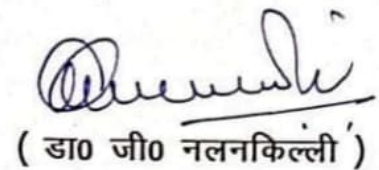 ( डा0 जी0 नलनकिल्ली )